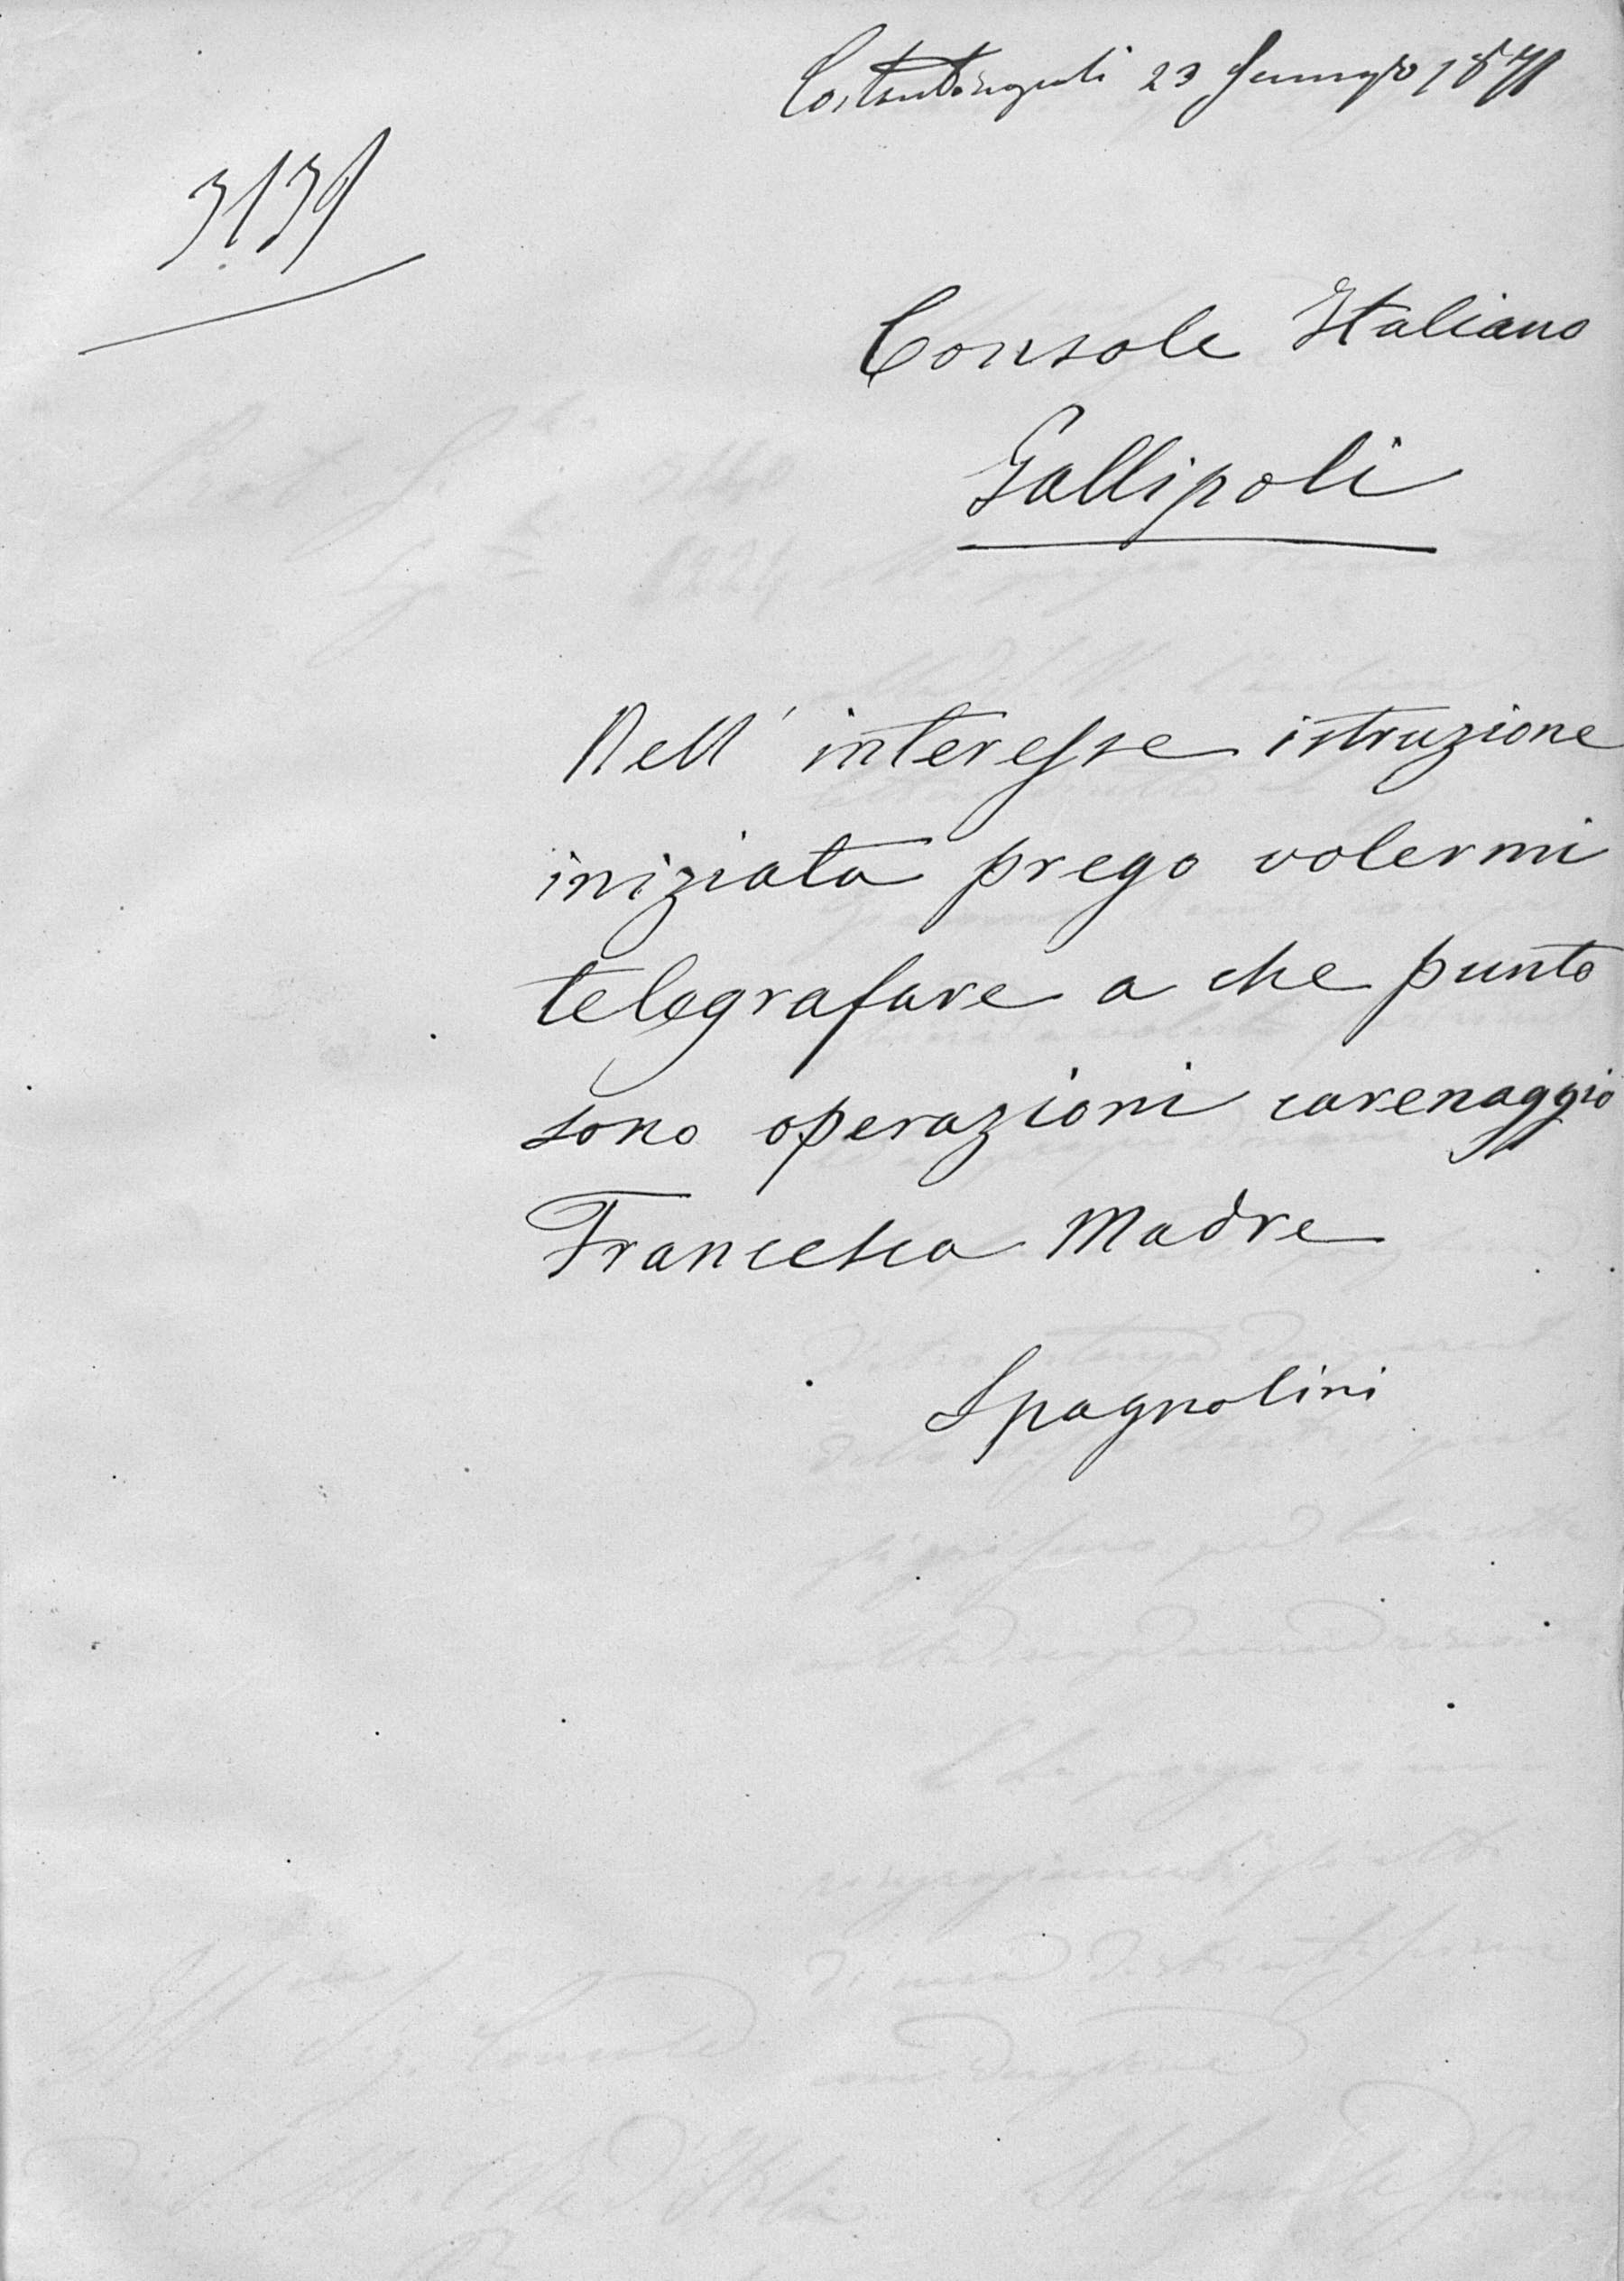 Costantinopoli 23 Gennajo 1871
3139
Console Italiano
Gallipoli
Nell' interesse istruzione
iniziata prego volermi
telegrafare a che punto
sono operazioni carenaggio
Francesca Madre
Spagnolini